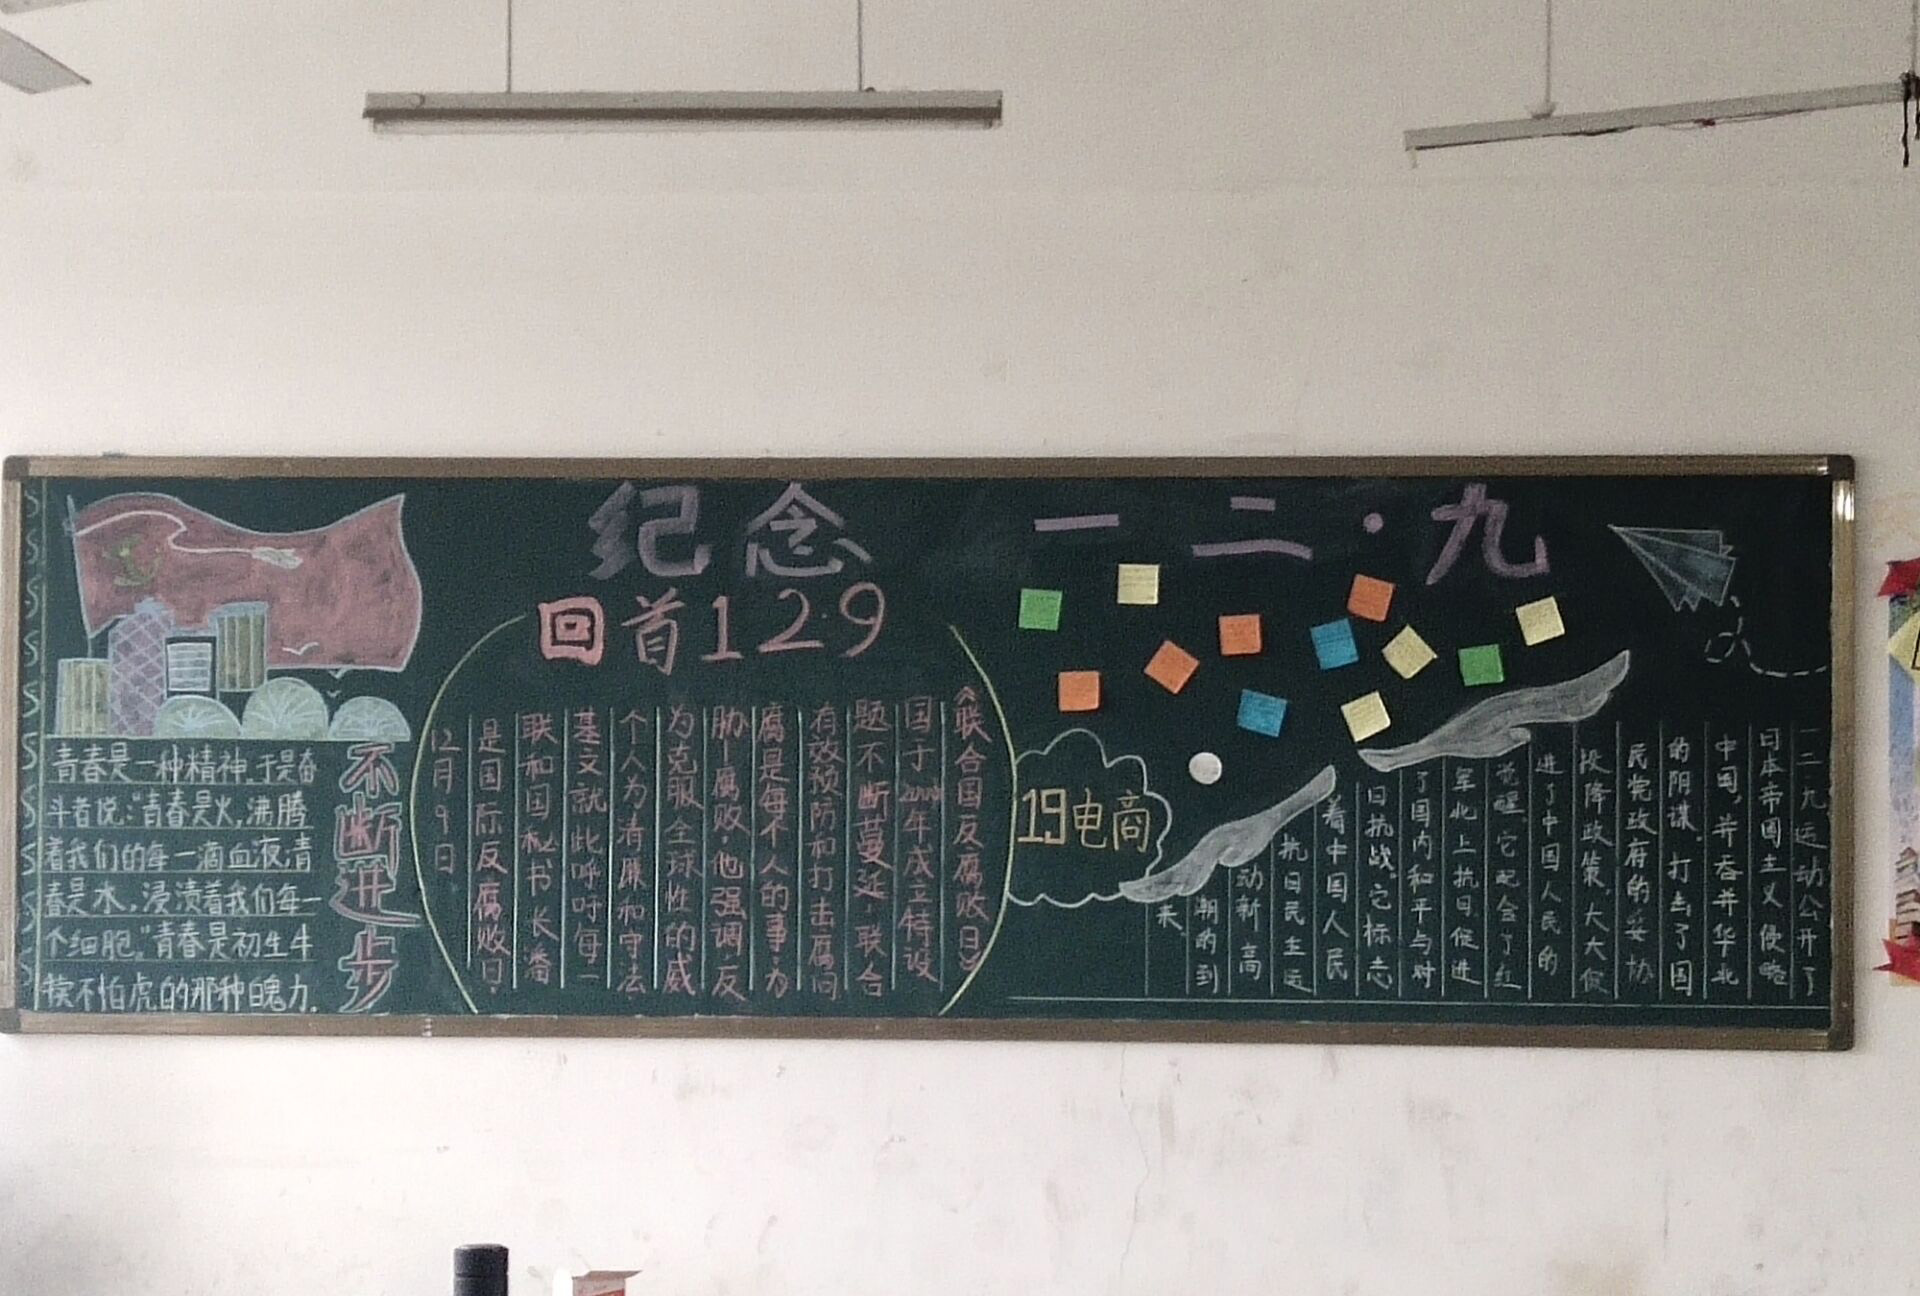 纪念 一二·九
回首12.9
不断进步
青春是一种精神,于是奋
斗者说:“青春是火,沸腾
着我们的每一滴血液,青
春是水,浸渍着我们每一
个细胞。”青春是初生牛
犊不怕虎的那种魄力。
《联合国反腐败日》
国于年成立特设
题不断蔓延,联合
有效预防和打击腐问
腐是每个人的事,为
胁—腐败,他强调,反
为克服全球性的威
个人为清廉和守法
基文就此呼吁每一
联和国秘书长潘
是国际反腐败日。
12月9日
19电商
一二·九运动公开了
日本帝国主义侵略
中国,并吞并华北
的阴谋,打击了国
民党政府的妥协
投降政策,大大促
进了中国人民的
觉醒。它配合了红
军北上抗日,促进
了国内和平与对
日抗战。它标志
着中国人民
抗日民主运
动新高
潮的到
来。